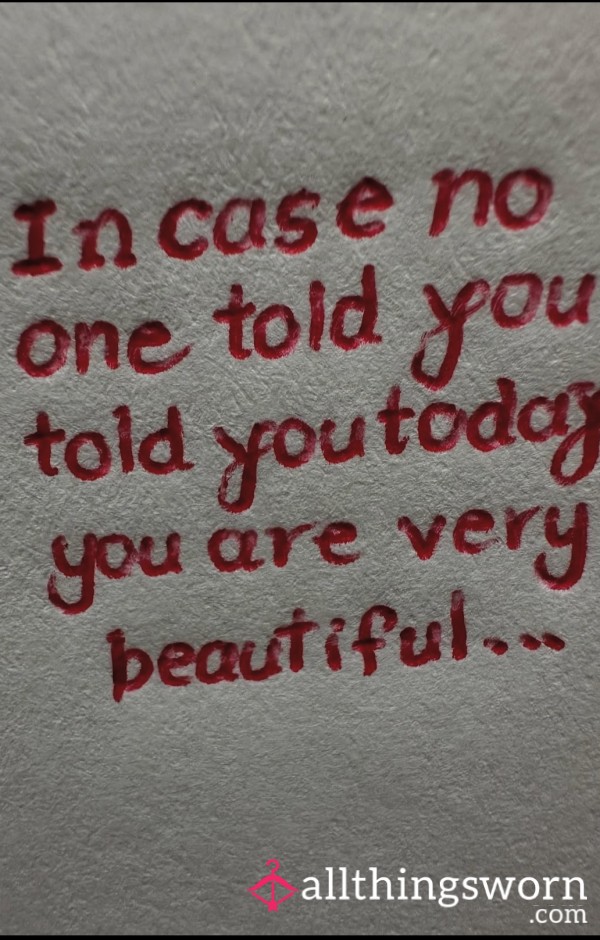 In case no
one told you
told you today
you are very
beautiful...
allthingsworn
.com